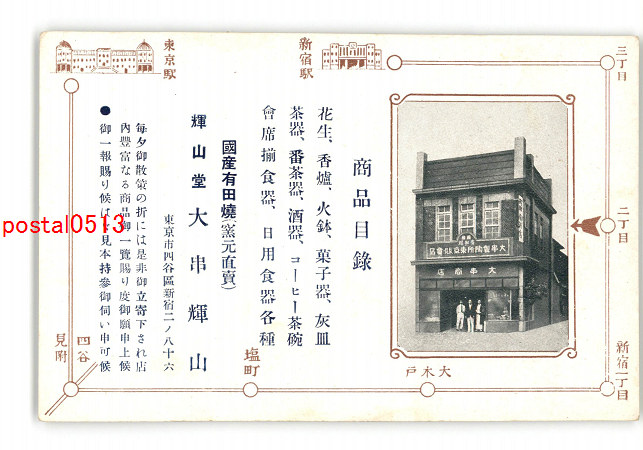 東京駅
新宿駅
三丁目
二丁目
新宿一丁目
大木戸
塩町
四谷
見附
商品目錄
花生、香爐、火鉢、菓子器、灰皿
茶器、番茶器、酒器、コーヒー茶碗
會席揃食器、日用食器各種
國産有田燒(窯元直賣)
東京市四谷區新宿二ノ八十六
輝山堂 大串輝山
毎夕御散策の折には是非御立寄下され店
內豊富なる商品御一覽賜り度御願申上候
●御一報賜り候はゞ見本持參御伺い申可候
大串製陶所東京販賣店
大串商店
postal0513